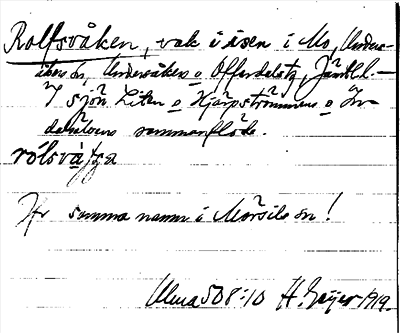 Rolfsvåken, vak i isen i Mo, Unders-
åkers sn, Undersåkers o Offerdals tg, Jämtl. l. —
I sjön Liten o Hjärpströmmens o In-
dalsälvens sammanflöde.
rólsvà
Jfr samma namn i Mörsils sn!
Ulma 508:10 H. Geijer 1919.